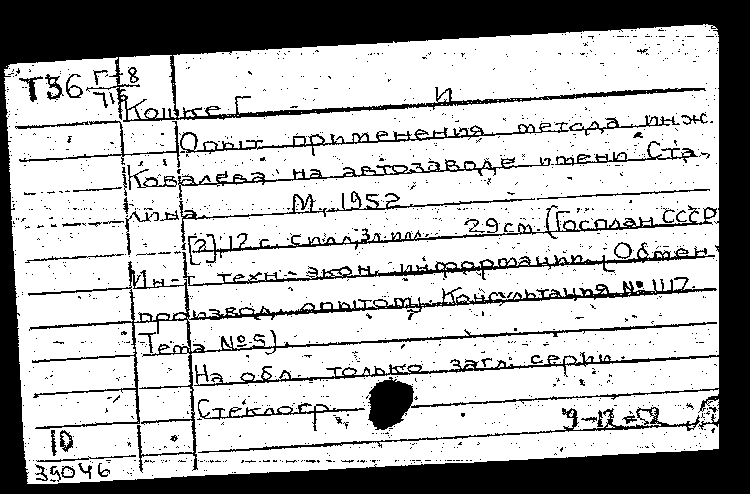 Т36 Г-8
716
Кошке, Г И
Опыт применения метода инж.
Ковалева на автозаводе имени Ста-
лина. М., 1952.
[2], 12 с. с илл., 3 л. илл. 29 см. (Госплан СССР
Ин-т техн.-экон. информации. (Обмен
производ. опытом). Консультация № 1117.
Тема № 5).
На обл. только загл. серии.
Стеклогр.
10
9-12-52
39046